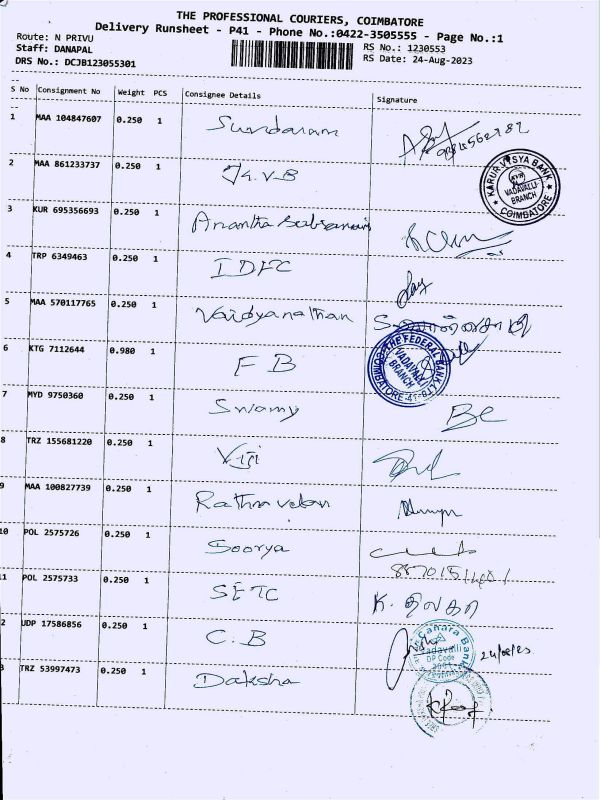 THE PROFESSIONAL COURIERS, COIMBATORE
Delivery Runsheet - P41 - Phone No.:0422-3505555 - Page No.:1
Route: N PRIVU
RS No.: 1230553
Staff: DANAPAL
RS Date: 24-Aug-2023
DRS No.: DCJB123055301
S No Consignment No Weight PCS Consignee Details Signature
1 MAA 104847607 0.250 1 Sundaram
2 MAA 861233737 0.250 1 K.V.B
KARUR VYSYA BANK
KVB
VADAVALLI
BRANCH
COIMBATORE
3 KUR 695356693 0.250 1 Anantha
4 TRP 6349463 0.250 1 IDFC
5 MAA 570117765 0.250 1 Vaidyanathan
6 KTG 7112644 0.980 1 FB
THE FEDERAL BANK LTD
VADAVALLI
BRANCH
COIMBATORE-41
7 MYD 9750360 0.250 1 Swamy
8 TRZ 155681220 0.250 1 Viji
9 MAA 100827739 0.250 1 Rathnavelan
10 POL 2575726 0.250 1 Soorya
11 POL 2575733 0.250 1 SETC
2 UDP 17586856 0.250 1 C.B
Canara Bank
Vadavalli
DP Code
24/08/23
3 TRZ 53997473 0.250 1 Daksha